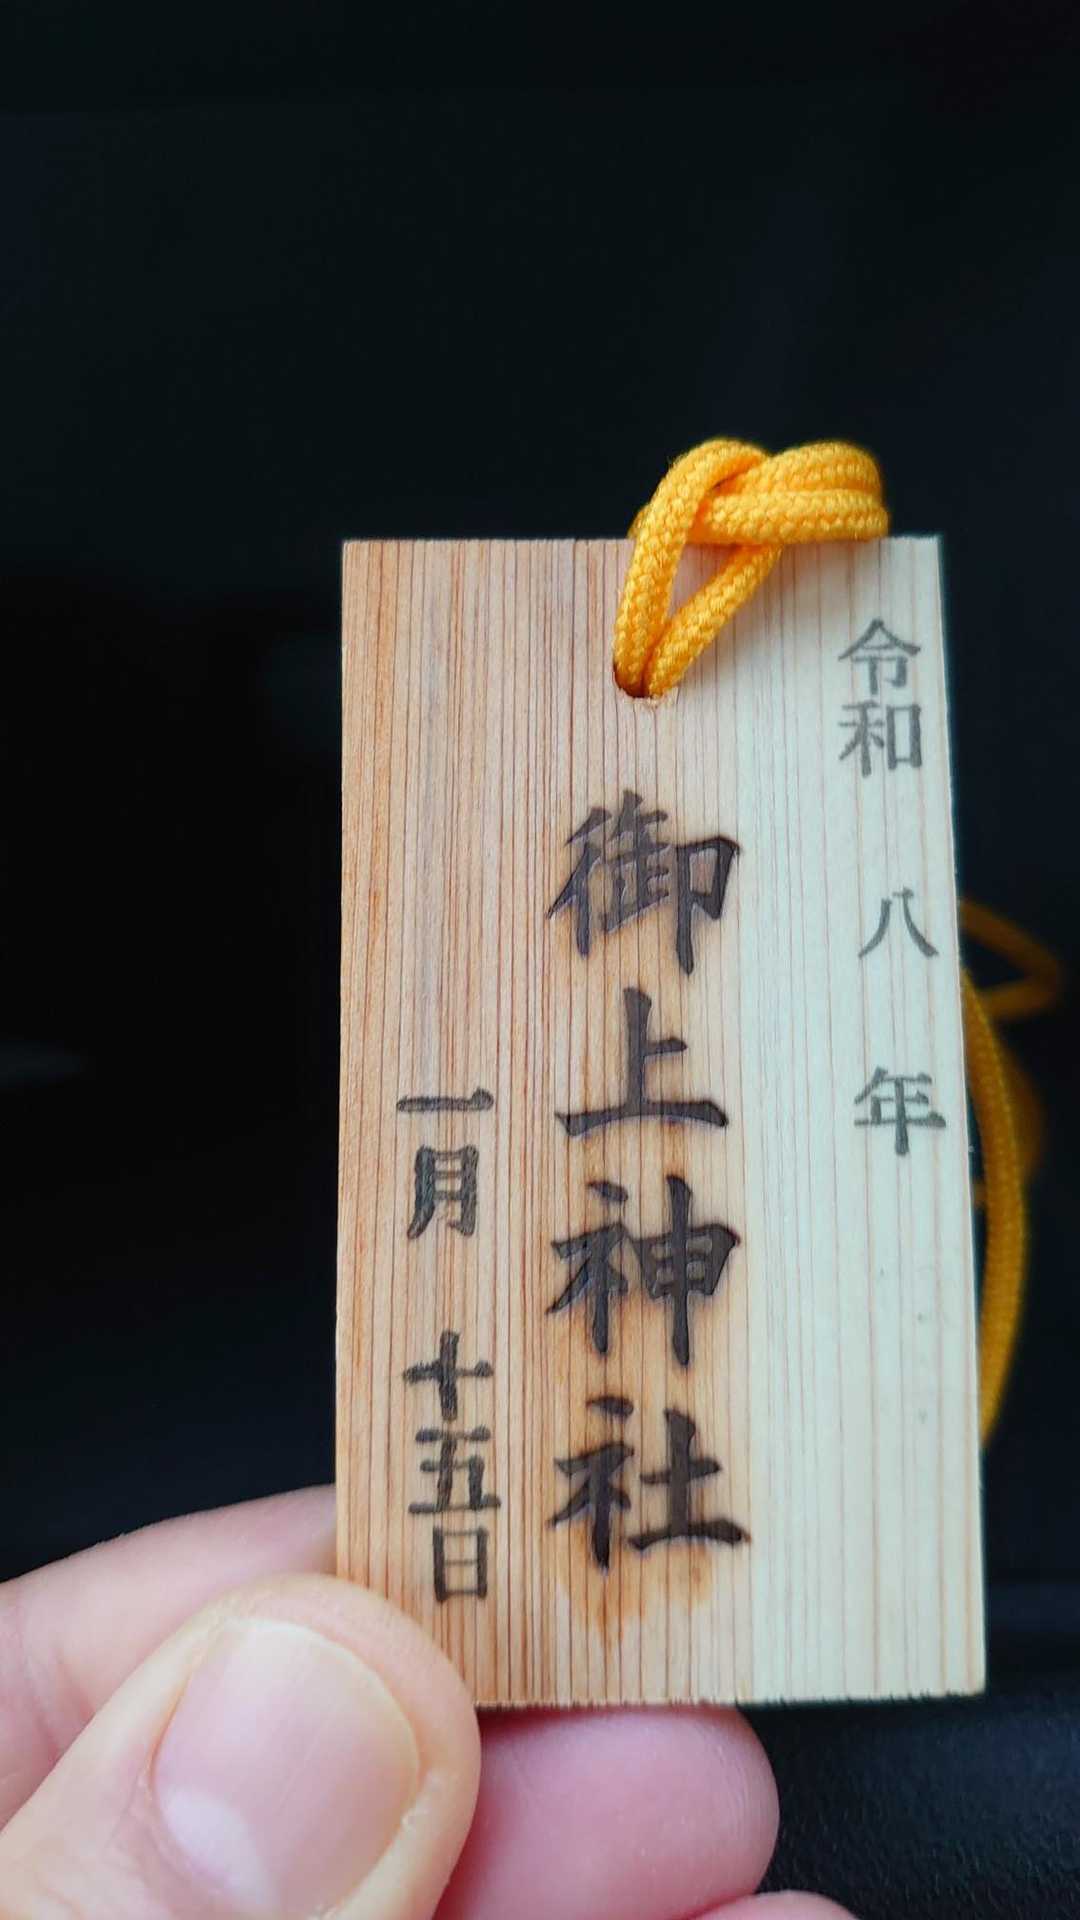 令和八年
御上神社
一月十五日